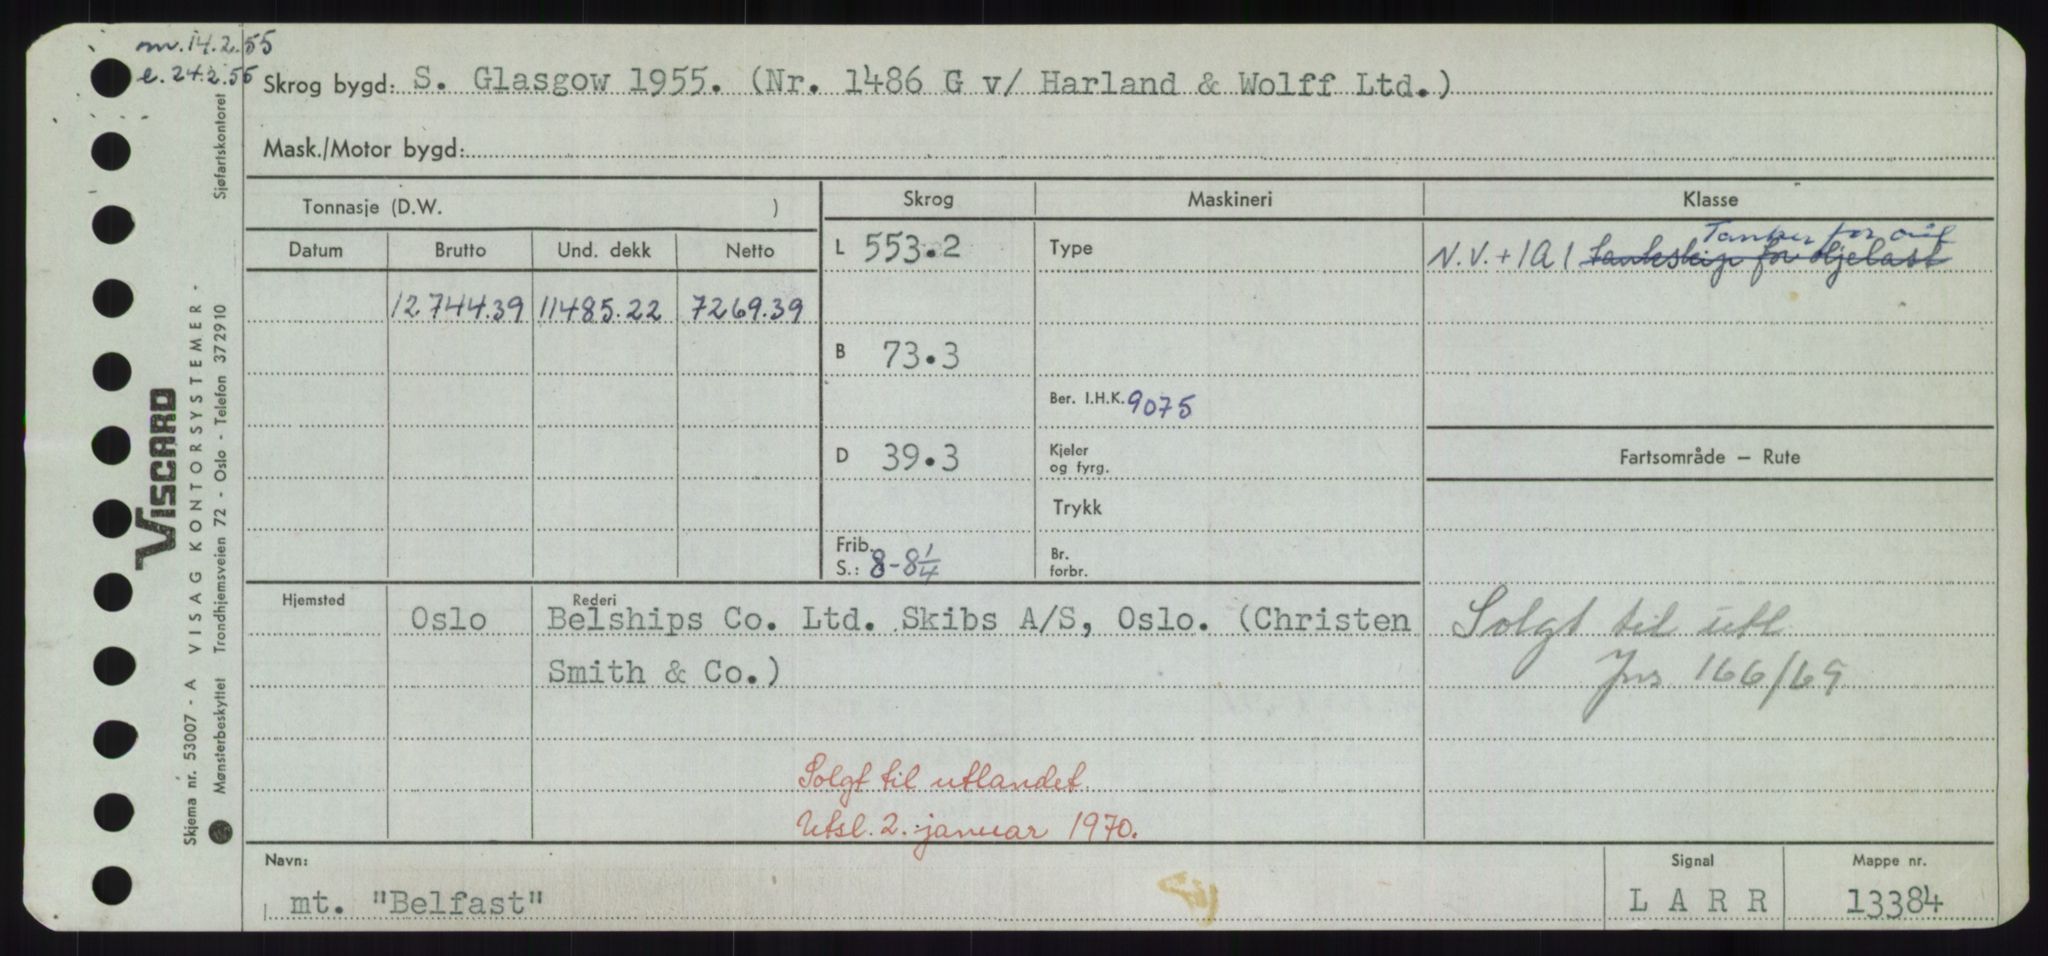 m. 14.2.55
e. 24.2.55
Skrog bygd: S. Glasgow 1955. (Nr. 1486 G v/ Harland & Wolff Ltd.)
Mask./Motor bygd:
Tonnasje (D.W. )
Skrog
Maskineri
Klasse
Datum Brutto Und. dekk Netto
L 553.2
Type
Tanker for oil
N.V. + 1A1 Tankskip for oljelast
12744.39 11485.22 7269.39
B 73.3
Ber. I.H.K. 9075
D 39.3
Kjeler
og fyrg.
Fartsområde – Rute
Trykk
Frib.
S.: 8-8 1/4
Br.
forbr.
Hjemsted
Rederi
Oslo Belships Co. Ltd. Skibs A/S, Oslo. (Christen
Smith & Co.)
Solgt til utl
Jnr 166/69
Solgt til utlandet.
Utsl. 2. januar 1970.
Navn:
mt. "Belfast"
Signal
L A R R
Mappe nr.
13384
Viscard
Skjema nr. 53007 - A VISAG KONTORSYSTEMER -
Mønsterbeskyttet Trondhjemsveien 72 - Oslo - Telefon 372910
Sjøfartskontoret